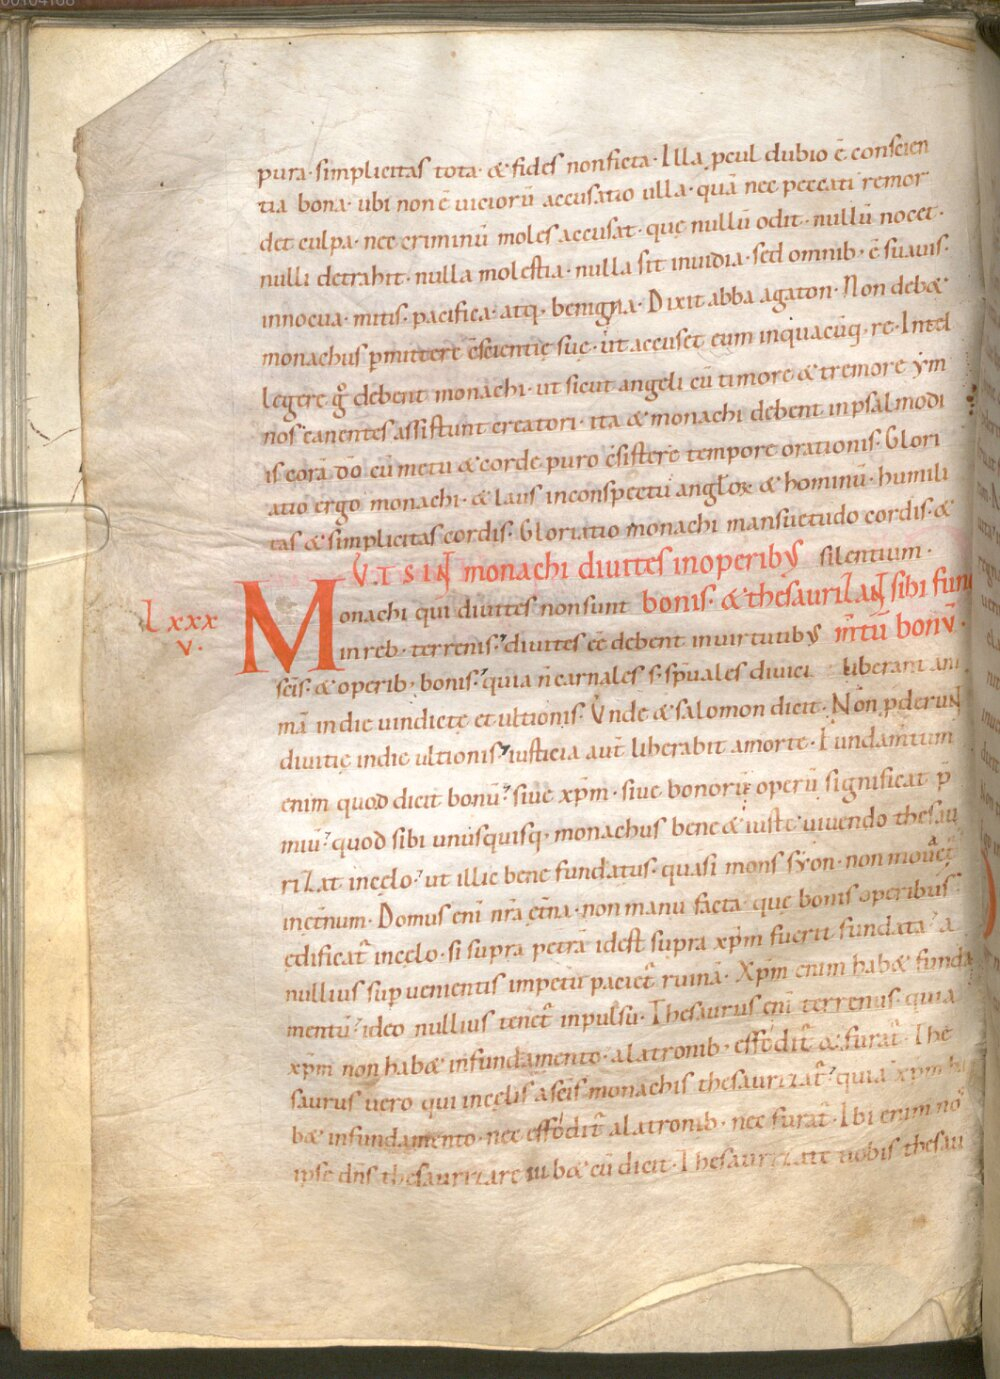 pura· simplicitas tota· & fides non ficta· Illa ꝓcul dubio ē conscien
tia bona· ubi non ē uiciorū accusatio ulla· quā nec peccati remor
det culpa· nec criminū moles accusat· quę nullū odit· nullū nocet·
nulli detrahit· nulla molestia· nulla sit inuidia· sed omnib; ē suauis·
innocua· mitis· pacifica· atq; benigna· Dixit abba agaton· Non deb&
monachus p̄mittere c̄scientię suę· ut accuset eum in quacūq; re· Intel
legere g̊ debent monachi· ut sicut angeli cū timore & tremore ym
nos canentes assistunt creatori· ita & monachi debent in psalmodi
is corā dō cū metu & corde puro c̄sistere tempore orationis· Glori
atio ergo monachi· & laus in conspectu angƚoꝝ & hominū· humili
tas & simplicitas cordis· Gloriatio monachi mansuetudo cordis· &
VT SINT monachi diuites in operibus silentium·
Lxxx
v·
Monachi qui diuites non sunt bonis· & thesaurizaNT sibi fun
in reb; terrenis· diuites eē debent in uirtutibus m̄tū bonū·
scīs· & operib; bonis· quia n̄ carnales s; sp̄uales diuici liberant ani
mā in die uindictę et ultionis· Vnde & salomon dicit· Non ꝓderuNT
diuitię in die ultionis· iusticia aut̄ liberabit a morte· Fundam̄tum
enim quod dicit bonū· siue xp̄m· siue bonorū operū significat p̄
miū· quod sibi unusquisq; monachus bene & iuste uiuendo thesau
rizat in cęlo· ut illic bene fundatus· quasi mons syon· non mouet̄
in et̄num· Domus eni nr̄a et̄na· non manu facta· quę bonis operibus
ędificat̄ in cęlo· si supra petrā idest supra xp̄m fuerit fundata· a
nullius suꝑuenientis impetu paciet̄ ruinā· Xp̄m enim hab& funda
mentū· ideo nullius tenet̄ inpulsu· Thesaurus eni terrenus· quia
xp̄m non hab& in fundamento· a latronib; effodit̄ & furat̄· The
saurus uero qui in cęlis a scīs monachis thesaurizat̄· quia xp̄m ha
b& in fundamento· nec effodit̄ a latronib; nec furat̄· Ibi enim nos
ipse dn̄s thesaurizare iub& cū dicit· Thesaurizate uobis thesau